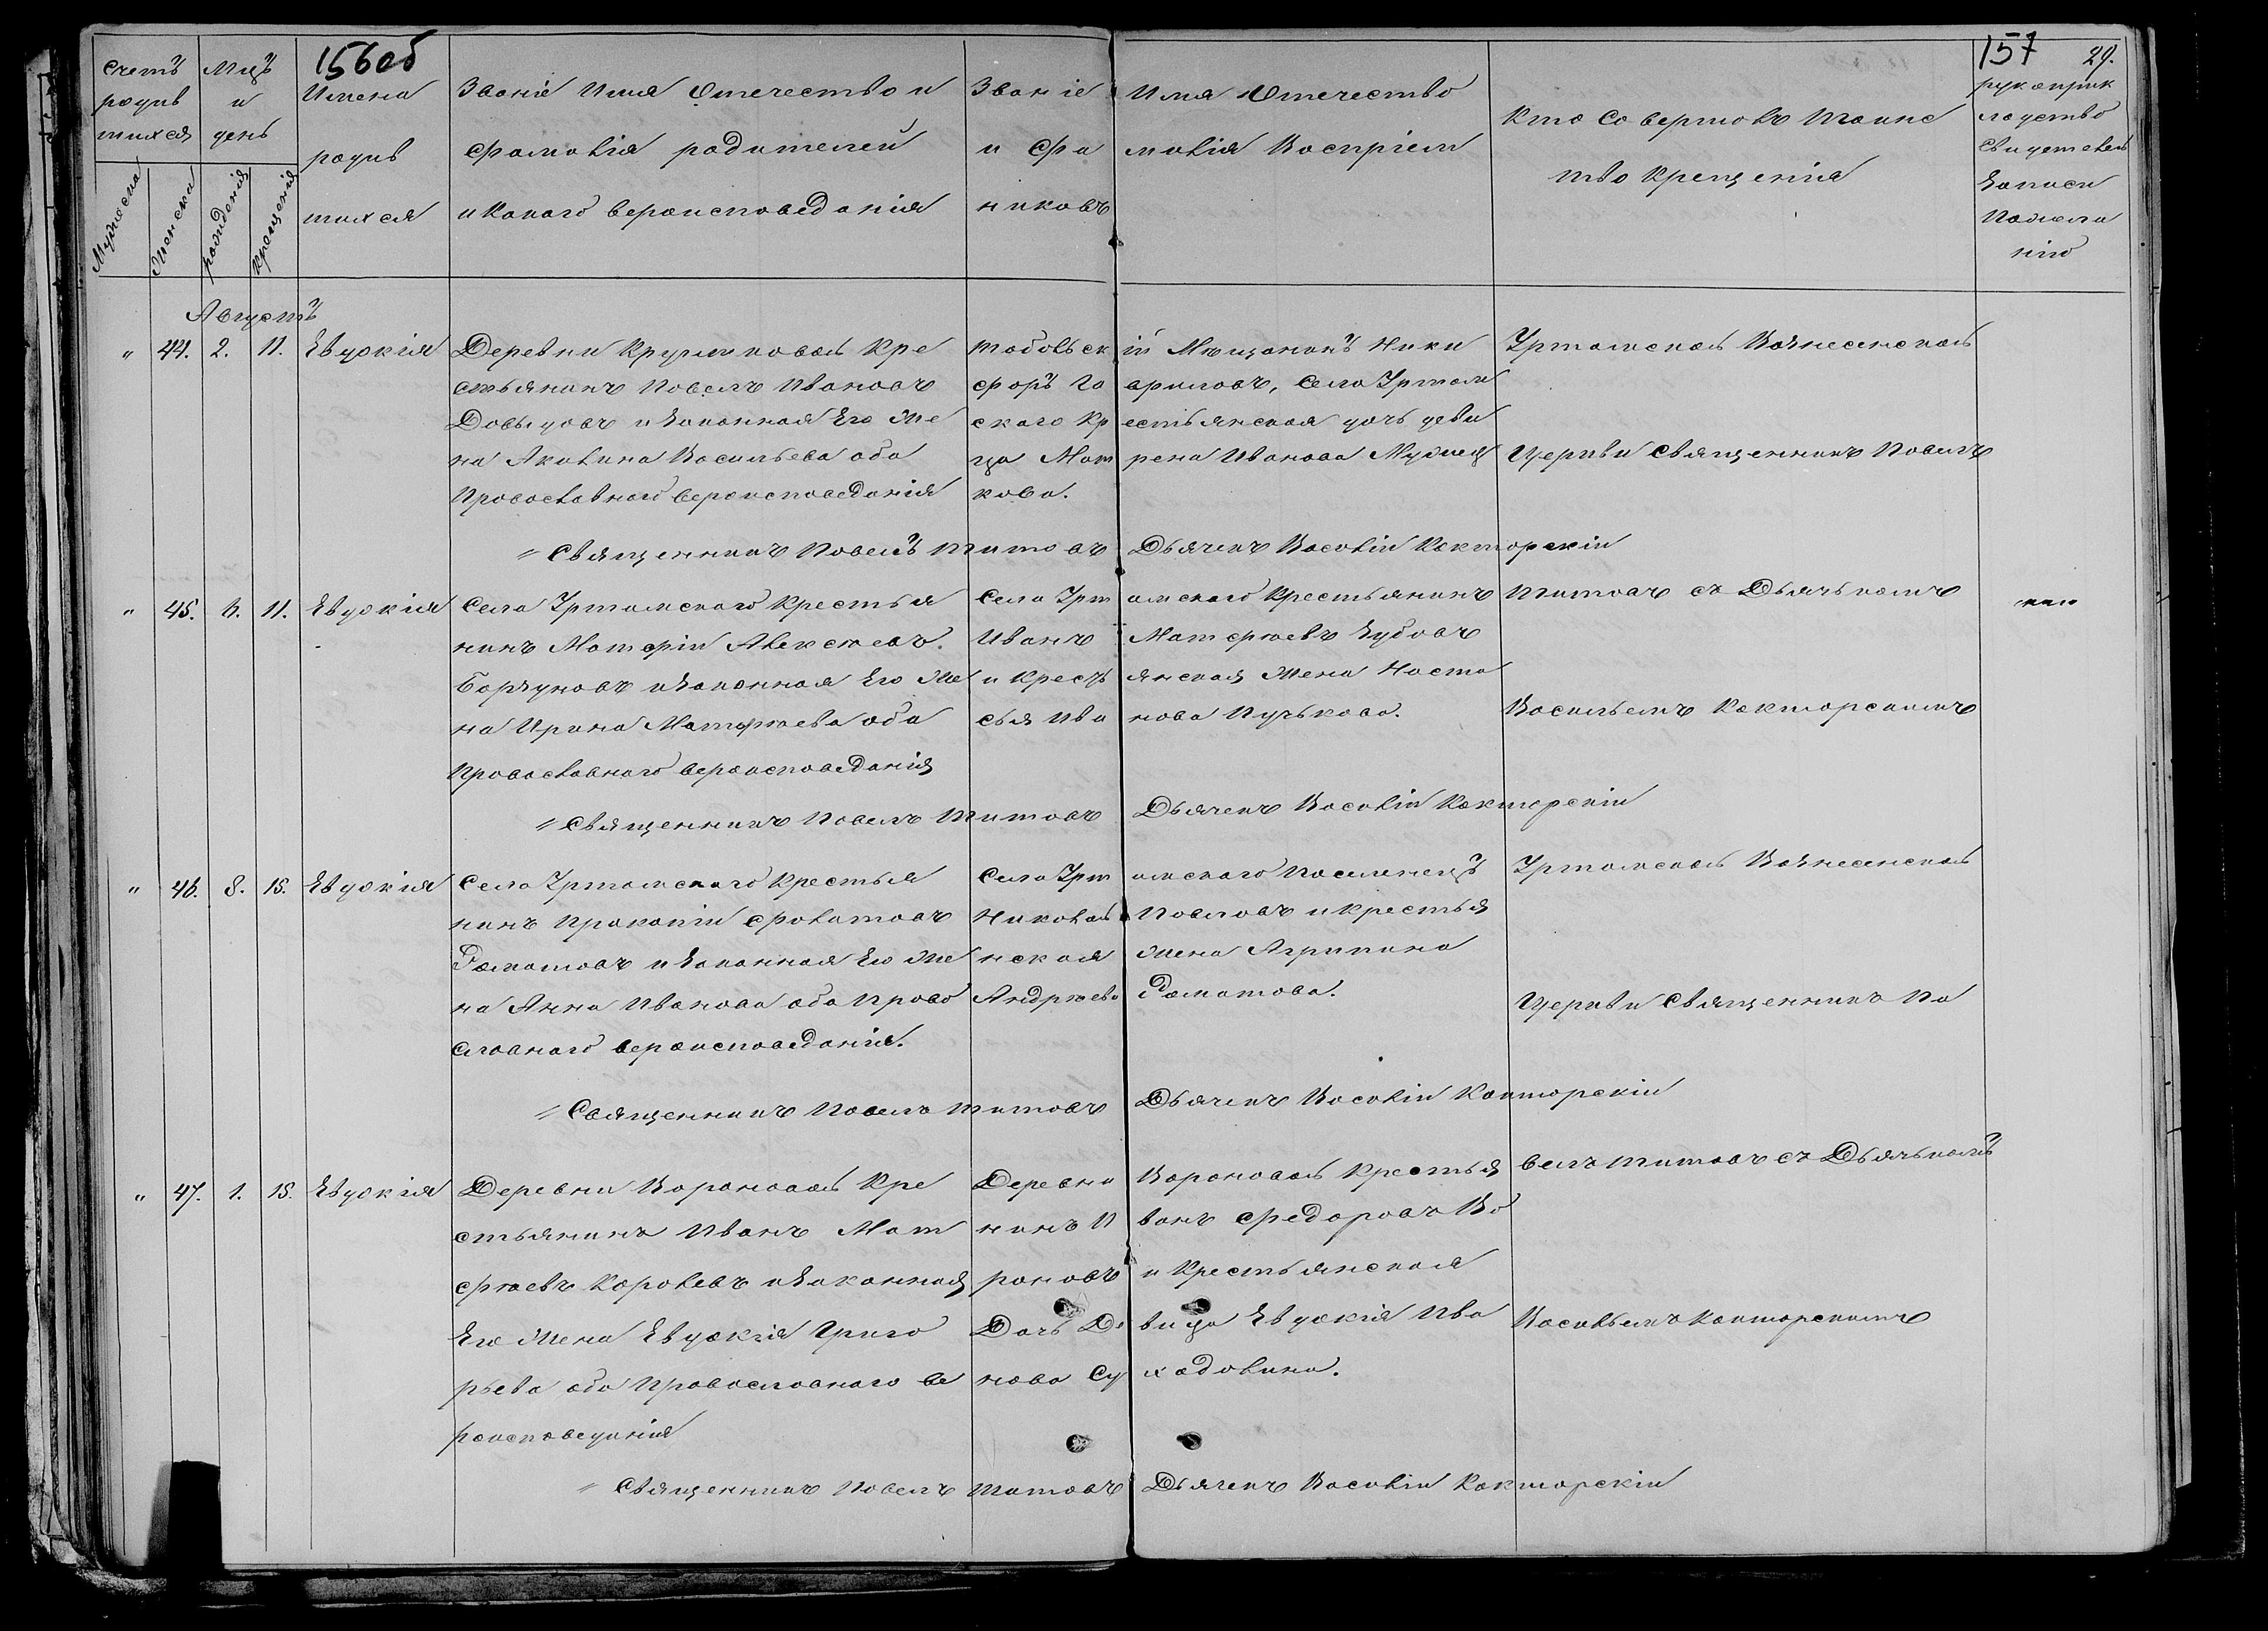 156об
157 29.
Счетъ родив шихся
Мцъ и день
Имена родив шихся
Званіе Имя Отечество и
фамилія родителей
и какого вероисповеданія
Званіе Имя Отечество
и фа милія Воспріем
никовъ
Кто Совершалъ Таинс
тво Крещенія
рукоприк
ладство
Свидетелей
Записи
По жела
нію
Мужеска
Женска
рожденія
Крещенія
Августъ
" 44. 2. 11. Евдокія
Деревни Кругликовой Кре
стьянинъ Павелъ Ивановъ
Давыдовъ и Законная Его Же
на Акилина Васильева оба
Православнаго вероисповеданія
Тобольск ій Мещанинъ Ники
форъ Га вриловъ, Села Уртам
скаго Кр естьянская дочь деви
ца Мат рена Иванова
кова.
Уртамской Вознесенской
Церкви Священникъ Павелъ
Священникъ Павелъ Титовъ Дьячекъ Василій Конторскій
" 45. 6. 11. Евдокія
Села Уртамского Крестья
нинъ Матфій Алексеевъ
Барчуновъ и Законная Его Же
на Ирина Матфеева оба
Православнаго вероисповеданія
Села Урт амского Крестьянинъ
Иванъ Матфеевъ Зубовъ
и Кресть янская Жена Наста
сья Ива нова Пучькова.
Титовъ съ Дьячькомъ
Васильемъ Конторскимъ
Священникъ Павелъ Титовъ Дьячекъ Василій Конторскій
" 46. 8. 15. Евдокія
Села Уртамскаго Крестья
нинъ Прокопій Филатовъ
Доматовъ и Законная Его Же
на Анна Иванова оба Право
славнаго вероисповеданія.
Села Урт амского Поселенецъ
Николай Павловъ и крестья
нская Жена Агрипина
Андреева Доматова.
Уртамской Вознесенской
Церкви Священникъ Па
Священникъ Павелъ Титовъ Дьячекъ Василій Конторскій
" 47. 1. 15. Евдокія
Деревни Вороновой Кре
стьянинъ Иванъ Мат
феевъ Королевъ и Законная
Его Жена Евдокія Григо
рьева оба Православнаго ве
роисповеданія
Деревни Вороновой Крестья
нинъ И ванъ Федоровъ Во
роновъ и Крестьянская
Дочь Де вица Евдокія Ива
нова Су ходолина.
велъ Титовъ съ Дьячькомъ
Васильемъ Конторскимъ
Священникъ Павелъ Титовъ Дьячекъ Василій Конторскій